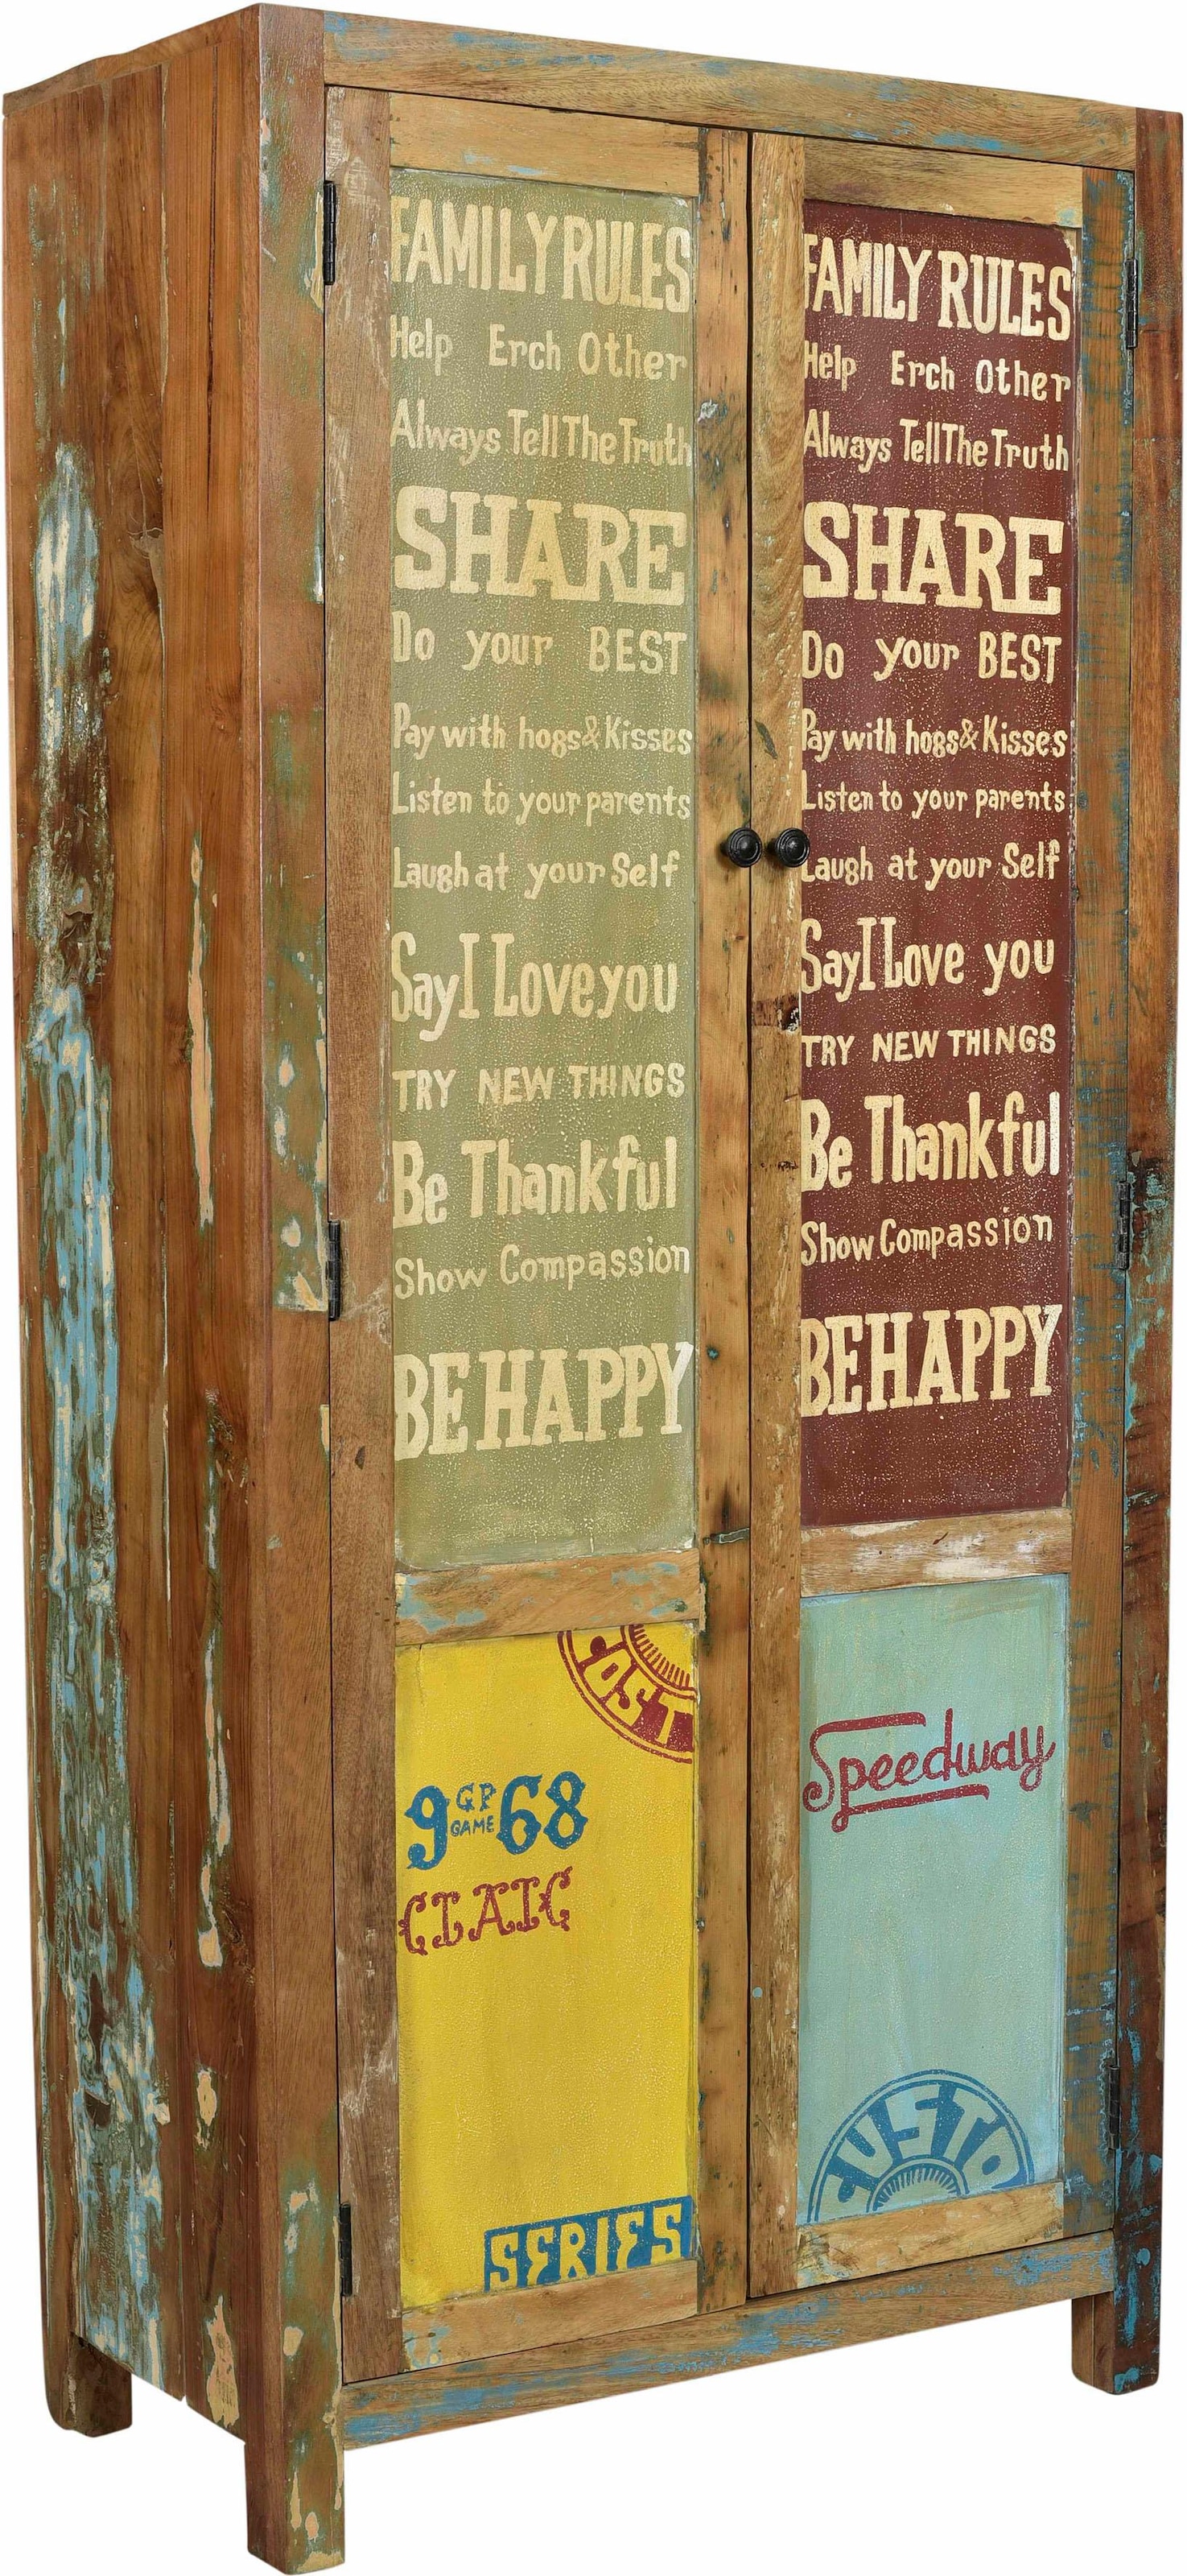 FAMILY RULES
Help Erch Other
Always Tell The Truth
SHARE
Do your BEST
Pay with hogs & Kisses
Listen to your parents
Laugh at your Self
Say I Love you
TRY NEW THINGS
Be Thankful
Show Compassion
BE HAPPY
9 GP GAME 68
CLAIC
SERIES
FAMILY RULES
Help Erch Other
Always Tell The Truth
SHARE
Do your BEST
Pay with hogs & Kisses
Listen to your parents
Laugh at your Self
Say I Love you
TRY NEW THINGS
Be Thankful
Show Compassion
BE HAPPY
Speedway